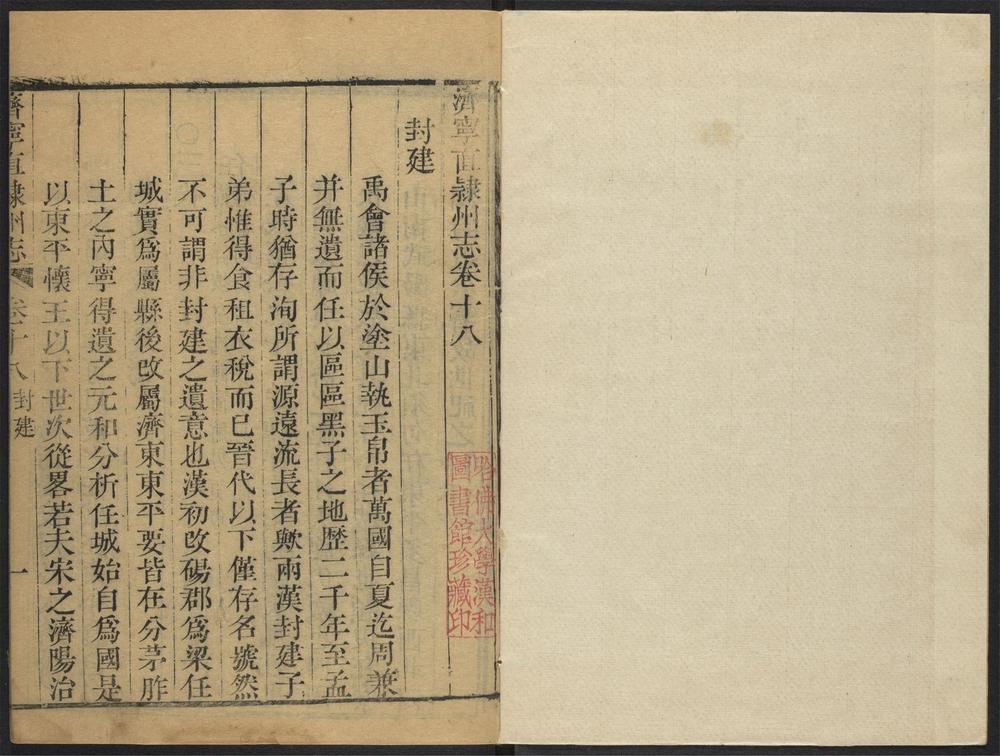 濟寧直隷州志卷十八
哈佛大學漢和
圖書館珍藏印
封建
禹會諸侯於塗山執玉帛者萬國自夏迄周兼
并無遺而任以區區黑子之地歷二千年至孟
子時猶存洵所謂源遠流長者歟兩漢封建子
弟惟得食租衣稅而已晉代以下僅存名號然
不可謂非封建之遺意也漢初改碭郡爲梁任
城實爲屬縣後改屬濟東東平要皆在分茅胙
土之內寧得遺之元和分析任城始自爲國是
以東平懷王以下世次從畧若夫宋之濟陽治
濟寧直隷州志 卷十八 封建 一